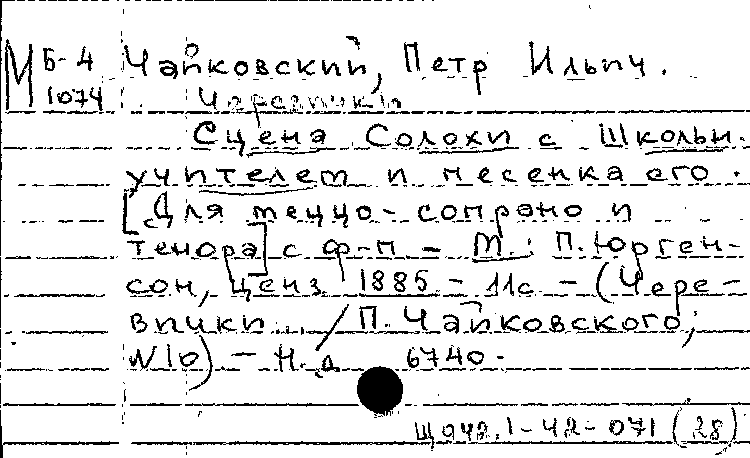 М Б-4 Чайковский, Петр Ильич.
1074 Черевички
Сцена Солохи с Школьн.
учителем и песенка его.
[Для меццо-сопрано и
тенора] с ф-п - М.: П. Юрген-
сон, ценз 1885 - 11с - (Чере-
вички... / П. Чайковского;
N10) - Н.д. 6740.
Щ942.1-42-071 (28)